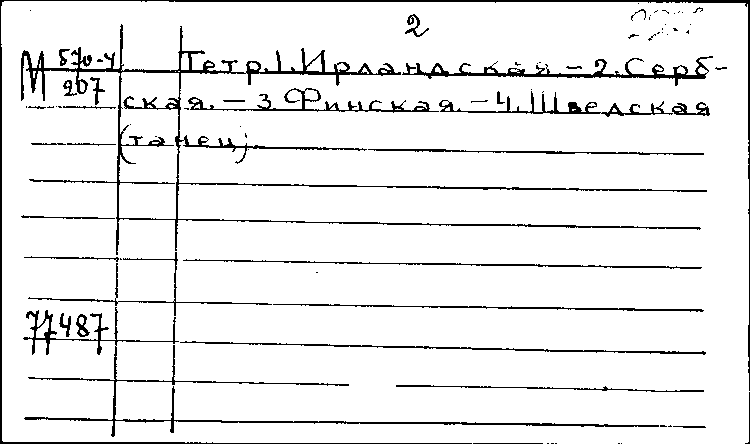 2
М 570-4 Тетр.1.Ирландская – 2.Серб-
207 ская. – 3.Финская. – 4.Шведская
(танец).
77487